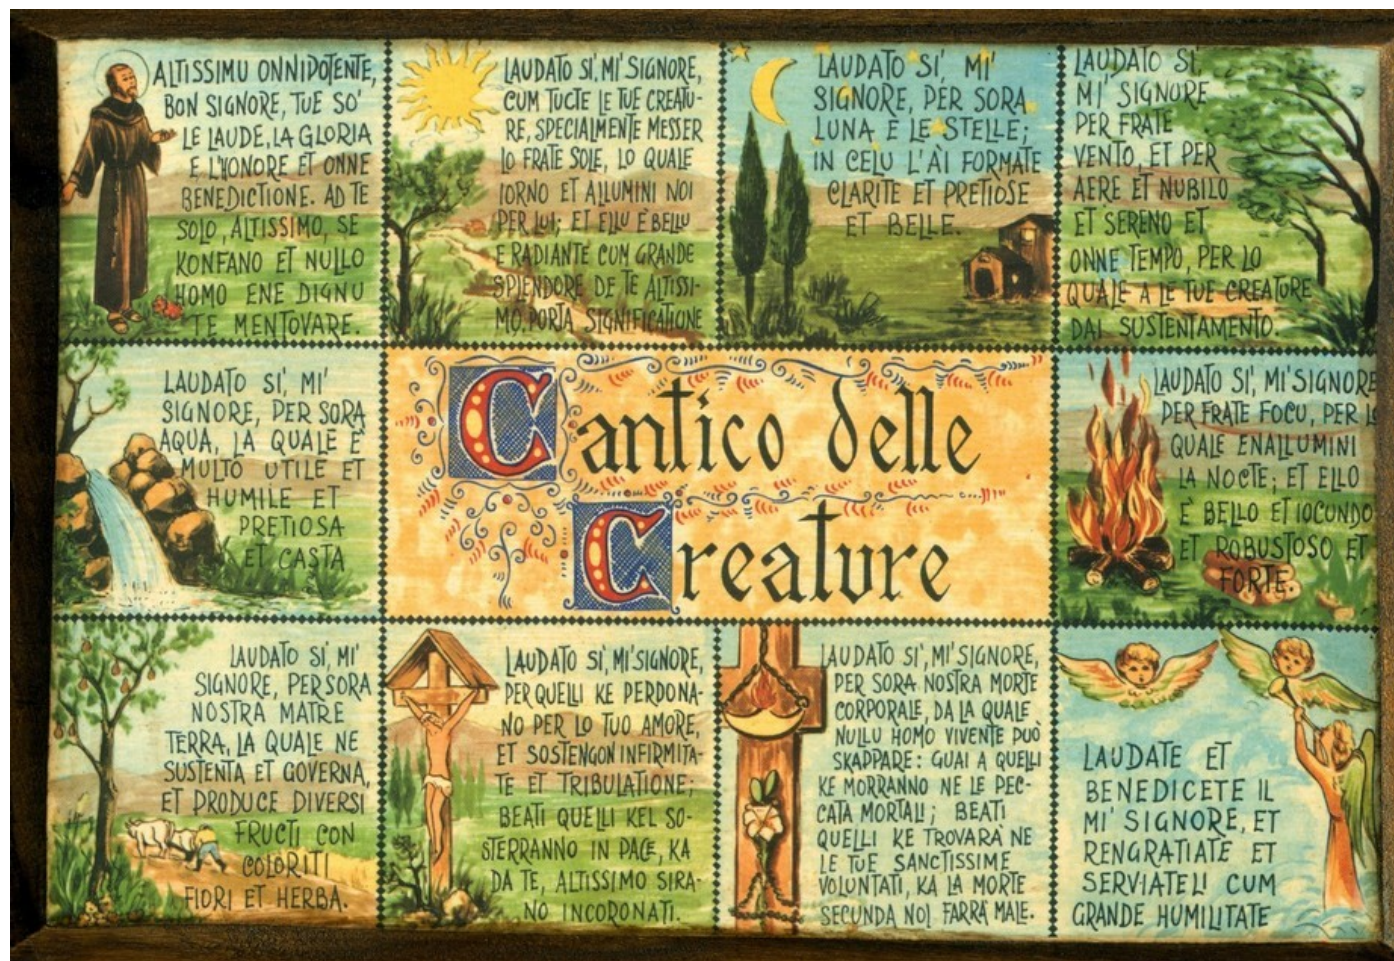 ALTISSIMU ONNIPOTENTE,
BON SIGNORE, TUE SO'
LE LAUDE, LA GLORIA
E L'HONORE ET ONNE
BENEDICTIONE. AD TE
SOLO, ALTISSIMO, SE
KONFANO ET NULLO
HOMO ENE DIGNU
TE MENTOVARE.
LAUDATO SI', MI' SIGNORE,
CUM TUCTE LE TUE CREATU-
RE, SPECIALMENTE MESSER
LO FRATE SOLE, LO QUALE
IORNO ET ALLUMINI NOI
PER LUI; ET ELLU È BELLU
E RADIANTE CUM GRANDE
SPLENDORE DE TE ALTISSI-
MO, PORTA SIGNIFICATIONE
LAUDATO SI', MI'
SIGNORE, PER SORA
LUNA E LE STELLE;
IN CELU L'ÀI FORMATE
CLARITE ET PRETIOSE
ET BELLE.
LAUDATO SI',
MI' SIGNORE
PER FRATE
VENTO, ET PER
AERE ET NUBILO
ET SERENO ET
ONNE TEMPO, PER LO
QUALE A LE TUE CREATURE
DAI SUSTENTAMENTO.
LAUDATO SI', MI'
SIGNORE, PER SORA
AQUA, LA QUALE È
MULTO UTILE ET
HUMILE ET
PRETIOSA
ET CASTA
Cantico delle
Creature
LAUDATO SI', MI' SIGNORE
PER FRATE FOCU, PER LO
QUALE ENALLUMINI
LA NOCTE; ET ELLO
È BELLO ET IOCUNDO
ET ROBUSTOSO ET
FORTE.
LAUDATO SI', MI'
SIGNORE, PER SORA
NOSTRA MATRE
TERRA, LA QUALE NE
SUSTENTA ET GOVERNA,
ET PRODUCE DIVERSI
FRUCTI CON
COLORITI
FIORI ET HERBA.
LAUDATO SI', MI' SIGNORE,
PER QUELLI KE PERDONA-
NO PER LO TUO AMORE,
ET SOSTENGON INFIRMITA-
TE ET TRIBULATIONE;
BEATI QUELLI KEL SO-
STERRANNO IN PACE, KA
DA TE, ALTISSIMO SIRA-
NO INCORONATI.
LAUDATO SI', MI' SIGNORE,
PER SORA NOSTRA MORTE
CORPORALE, DA LA QUALE
NULLU HOMO VIVENTE PUÒ
SKAPPARE: GUAI A QUELLI
KE MORRANNO NE LE PEC-
CATA MORTALI; BEATI
QUELLI KE TROVARÀ NE
LE TUE SANCTISSIME
VOLUNTATI, KA LA MORTE
SECUNDA NOL FARRÀ MALE.
LAUDATE ET
BENEDICETE IL
MI' SIGNORE, ET
RENGRATIATE ET
SERVIATELI CUM
GRANDE HUMILITATE